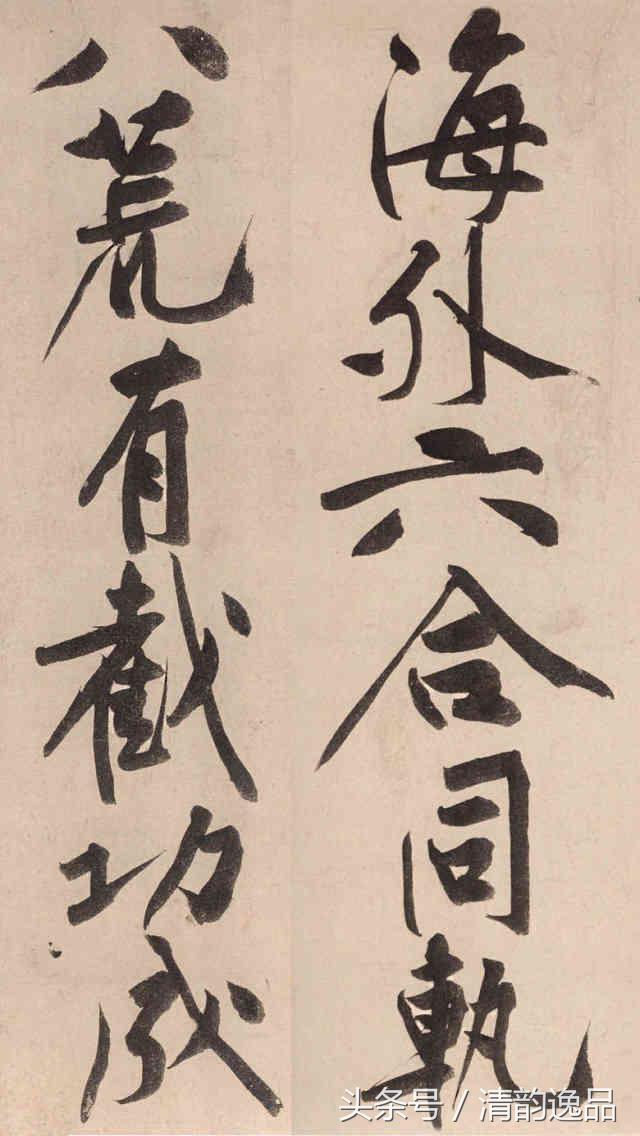 海外六合同軌
八荒有截功成
头条号 / 清韵逸品